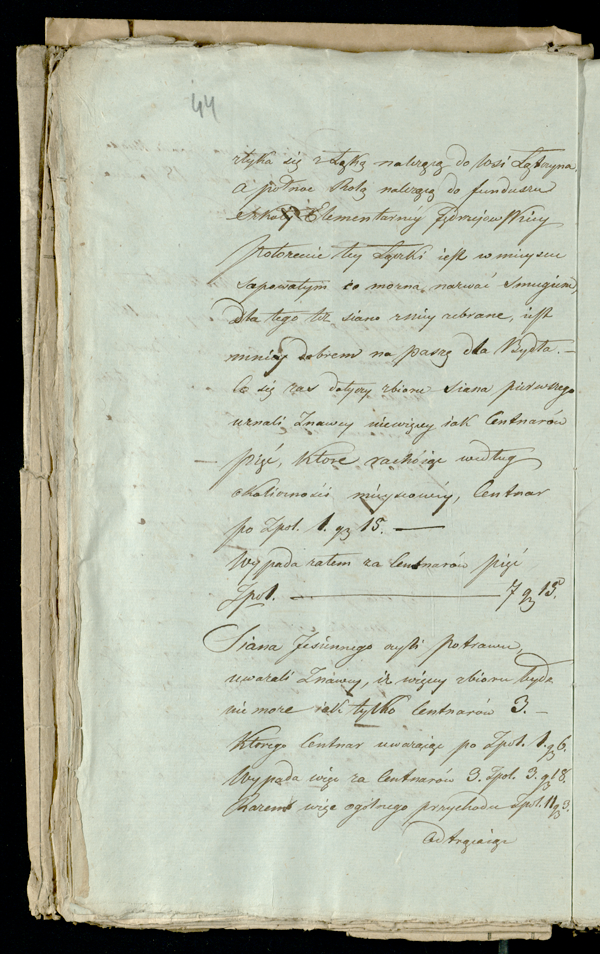 44
styka się z Łąką należącą do Wsi Łątczyna
a północ Rolą należącą do funduszu
Szkoły Elementarnéy Jędrzejowskiey
Położenie tey Łączki iest w mieyscu
sapowatym co można nazwać Smugiem
dla tego też siano z niey zebrane, iest
mniey dobrem na paszę dla Bydła. —
Co się zas dotyczy zbioru siana pierwszego
uznali Znawcy niewięcey iak Centnarów
pięć, które rachuiąc według
okoliczności mieyscowéy, Centnar
po Zpol. 1. gr 15. —
Wypada zatem za Centnarów pięć
Zpol. — 7 gr 15.
Siana Jesiennego czyli potrawu,
uważali Znawcy, iż więcey zbioru bydź
nie może iak tylko Centnarów 3. —
Którego Centnar uważaiąc po Zpol. 1. gr 6.
Wypada więc za Centnarów 3. Zpol. 3. gr 18.
Razem więc ogólnego przychodu Zpol. 11 gr 3.
Odtrąciaiąc